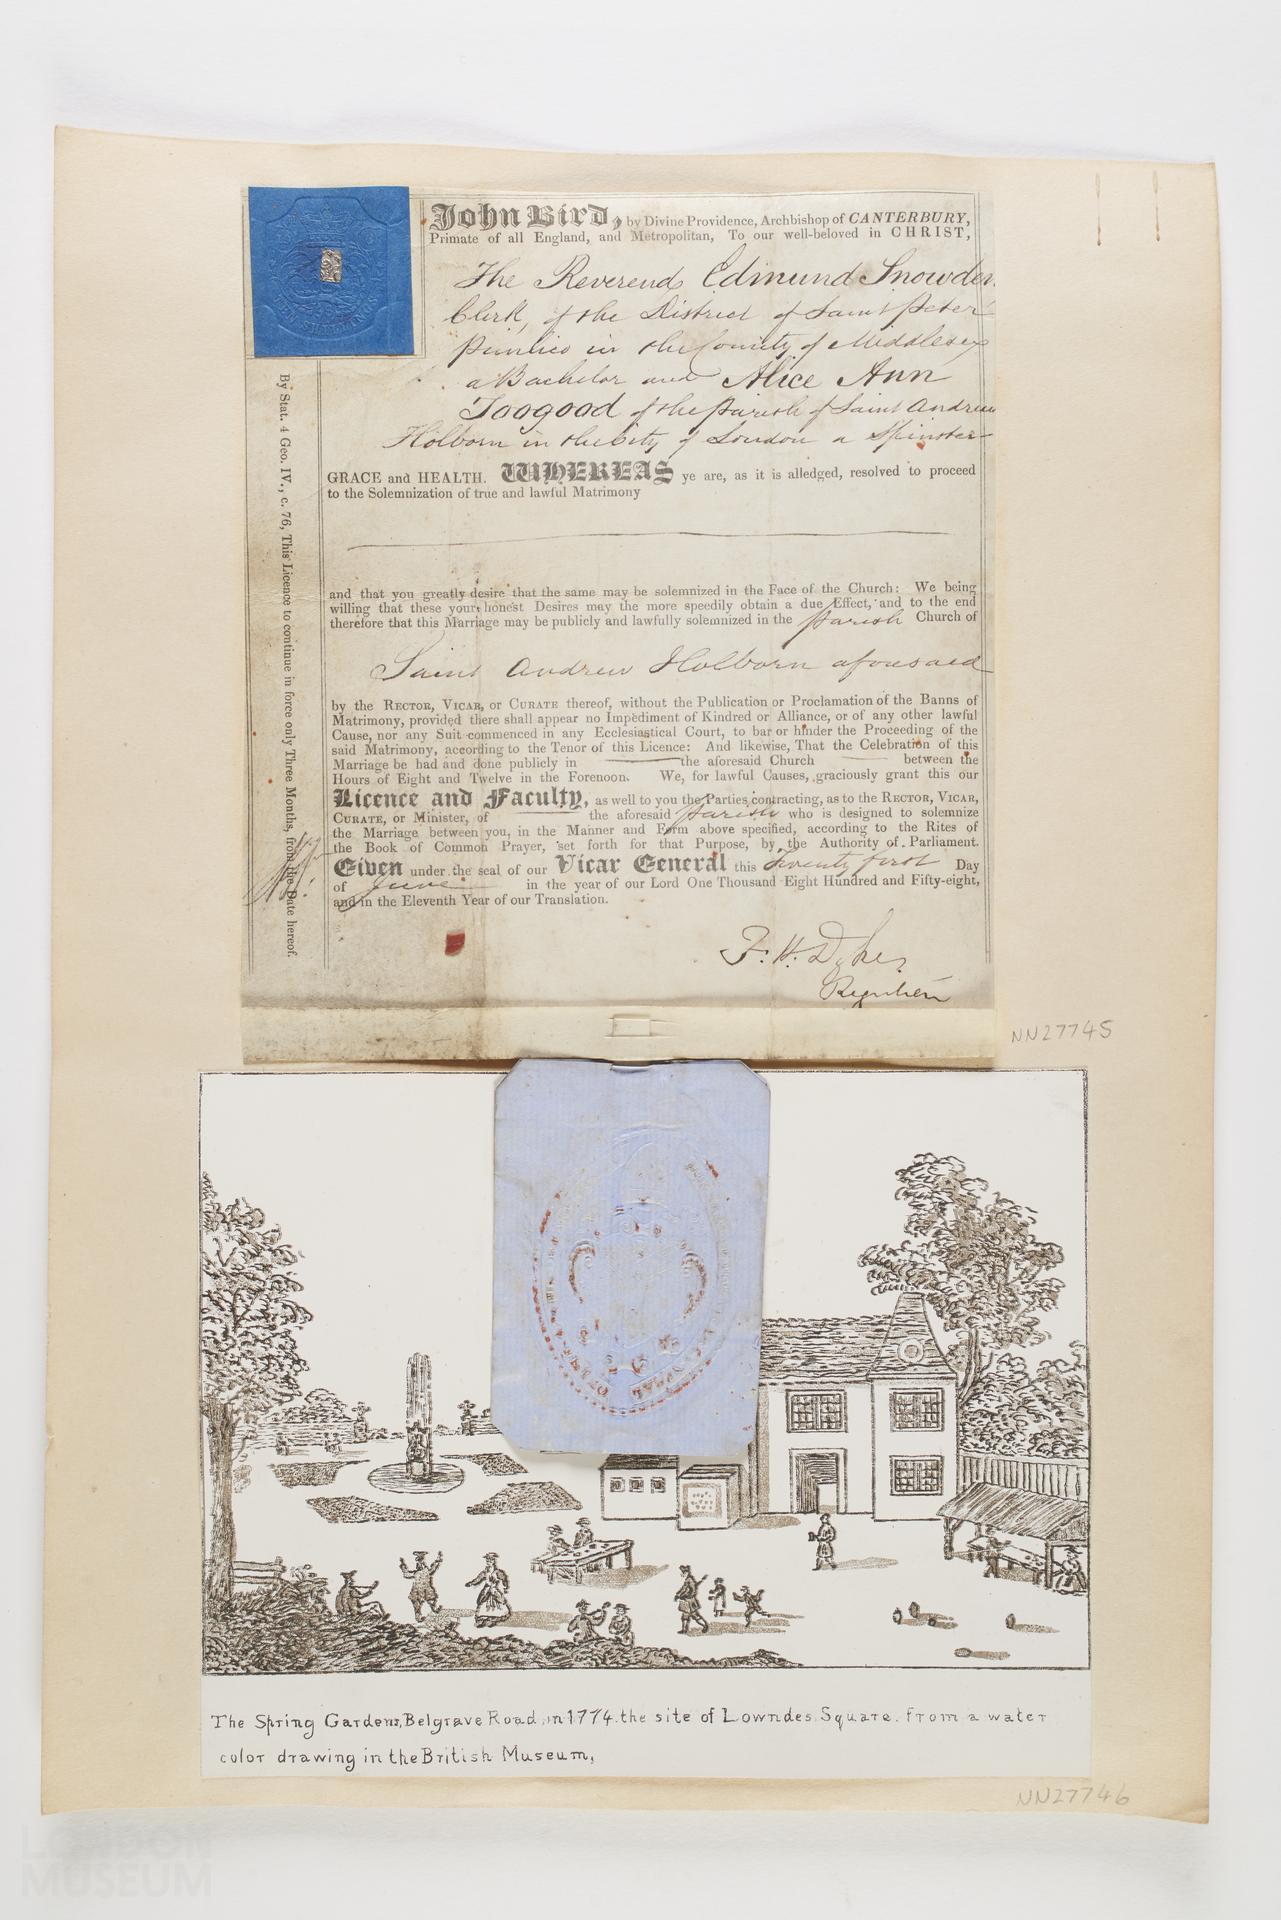 John Bird, by Divine Providence, Archbishop of CANTERBURY,
Primate of all England, and Metropolitan, To our well-beloved in CHRIST,
The Reverend Edmund Snowden
Clerk, of the District of Saint Peter
Pimlico in the County of Middlesex
a Bachelor and Alice Ann
Toogood of the Parish of Saint Andrew
Holborn in the City of London a Spinster
GRACE and HEALTH. WHEREAS ye are, as it is alledged, resolved to proceed
to the Solemnization of true and lawful Matrimony
and that you greatly desire that the same may be solemnized in the Face of the Church: We being
willing that these your honest Desires may the more speedily obtain a due Effect, and to the end
therefore that this Marriage may be publicly and lawfully solemnized in the Parish Church of
Saint Andrew Holborn aforesaid
by the RECTOR, VICAR, or CURATE thereof, without the Publication or Proclamation of the Banns of
Matrimony, provided there shall appear no Impediment of Kindred or Alliance, or of any other lawful
Cause, nor any Suit commenced in any Ecclesiastical Court, to bar or hinder the Proceeding of the
said Matrimony, according to the Tenor of this Licence: And likewise, That the Celebration of this
Marriage be had and done publicly in the aforesaid Church between the
Hours of Eight and Twelve in the Forenoon. We, for lawful Causes, graciously grant this our
Licence and Faculty, as well to you the Parties contracting, as to the RECTOR, VICAR,
CURATE, or Minister, of the aforesaid Parish who is designed to solemnize
the Marriage between you, in the Manner and Form above specified, according to the Rites of
the Book of Common Prayer, set forth for that Purpose, by the Authority of Parliament.
Given under the seal of our Vicar General this Twenty first Day
of June in the year of our Lord One Thousand Eight Hundred and Fifty-eight,
and in the Eleventh Year of our Translation.
F. H. Dyke,
By Stat. 4 Geo. IV., c. 76, This Licence to continue in force only Three Months, from the Date hereof.
NN27745
The Spring Gardens, Belgrave Road, in 1774. the site of Lowndes Square. from a water
color drawing in the British Museum,
NN27746
LONDON
MUSEUM